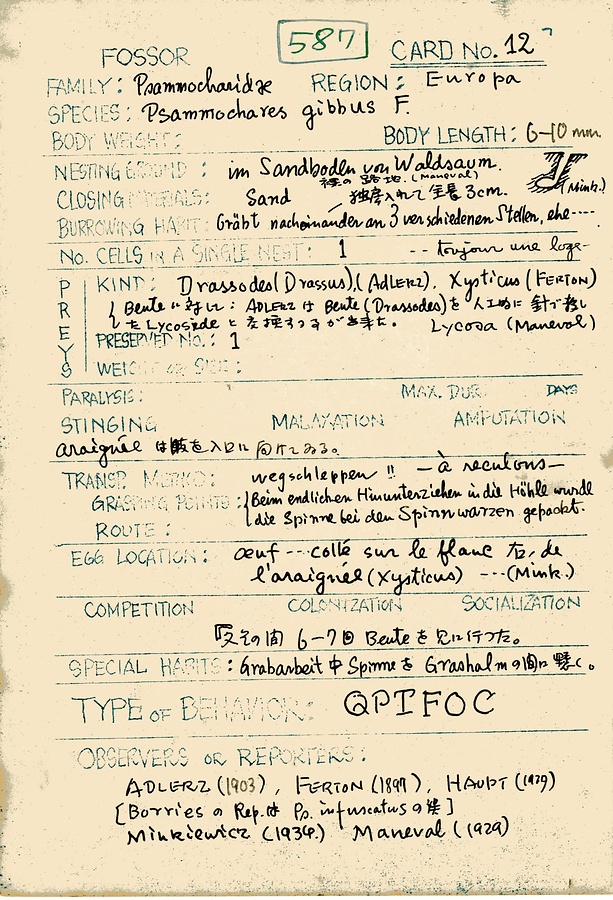 587
FOSSOR CARD No. 12
FAMILY: Psammocharidæ REGION: Europa
SPECIES: Psammochares gibbus F.
BODY WEIGHT: BODY LENGTH: 6–10 mm.
NESTING GROUND : im Sandboden von Waldsaum.
(Maneval) (Mink.)
CLOSING MATERIALS: Sand 独房入れて全長 3cm.
BURROWING HABIT: Gräbt nacheinander an 3 verschiedenen Stellen, ehe----
No. CELLS IN A SINGLE NEST: 1 -- toujour une loge-
PREYS
KIND: Drassodes (Drassus), (ADLERZ), Xysticus (FERTON)
Beute に対し: ADLERZ は Beute (Drassodes) を人工的に針で
した Lycosidæ と Lycosa (Maneval)
PRESERVED No.: 1
WEIGHT OR SIZE:
PARALYSIS: MAX. DUR. DAYS
STINGING MALAXATION AMPUTATION
araignée は を入口に向けてゐる。
TRANSP. METHOD: wegschleppen !! — à reculons —
GRASPING POINTS: Beim endlichen Hinunterziehen in die Höhle wurde
ROUTE: die Spinne bei den Spinnwarzen gepackt.
EGG LOCATION: œuf --- collé sur le flanc 左, de
l'araignée (Xysticus) --- (Mink.)
COMPETITION COLONIZATION SOCIALIZATION
『又その間 6–7回 Beute を見に行つた。
SPECIAL HABITS: Grabarbeit 中 Spinne を Grashalm の間に懸く。
TYPE OF BEHAVIOR: QPTFOC
OBSERVERS OR REPORTERS:
ADLERZ (1903), FERTON (1897), HAUPT (1929)
[Borries の Rep. は Ps. infuscatus の ]
Minkiewicz (1934) Maneval (1929)